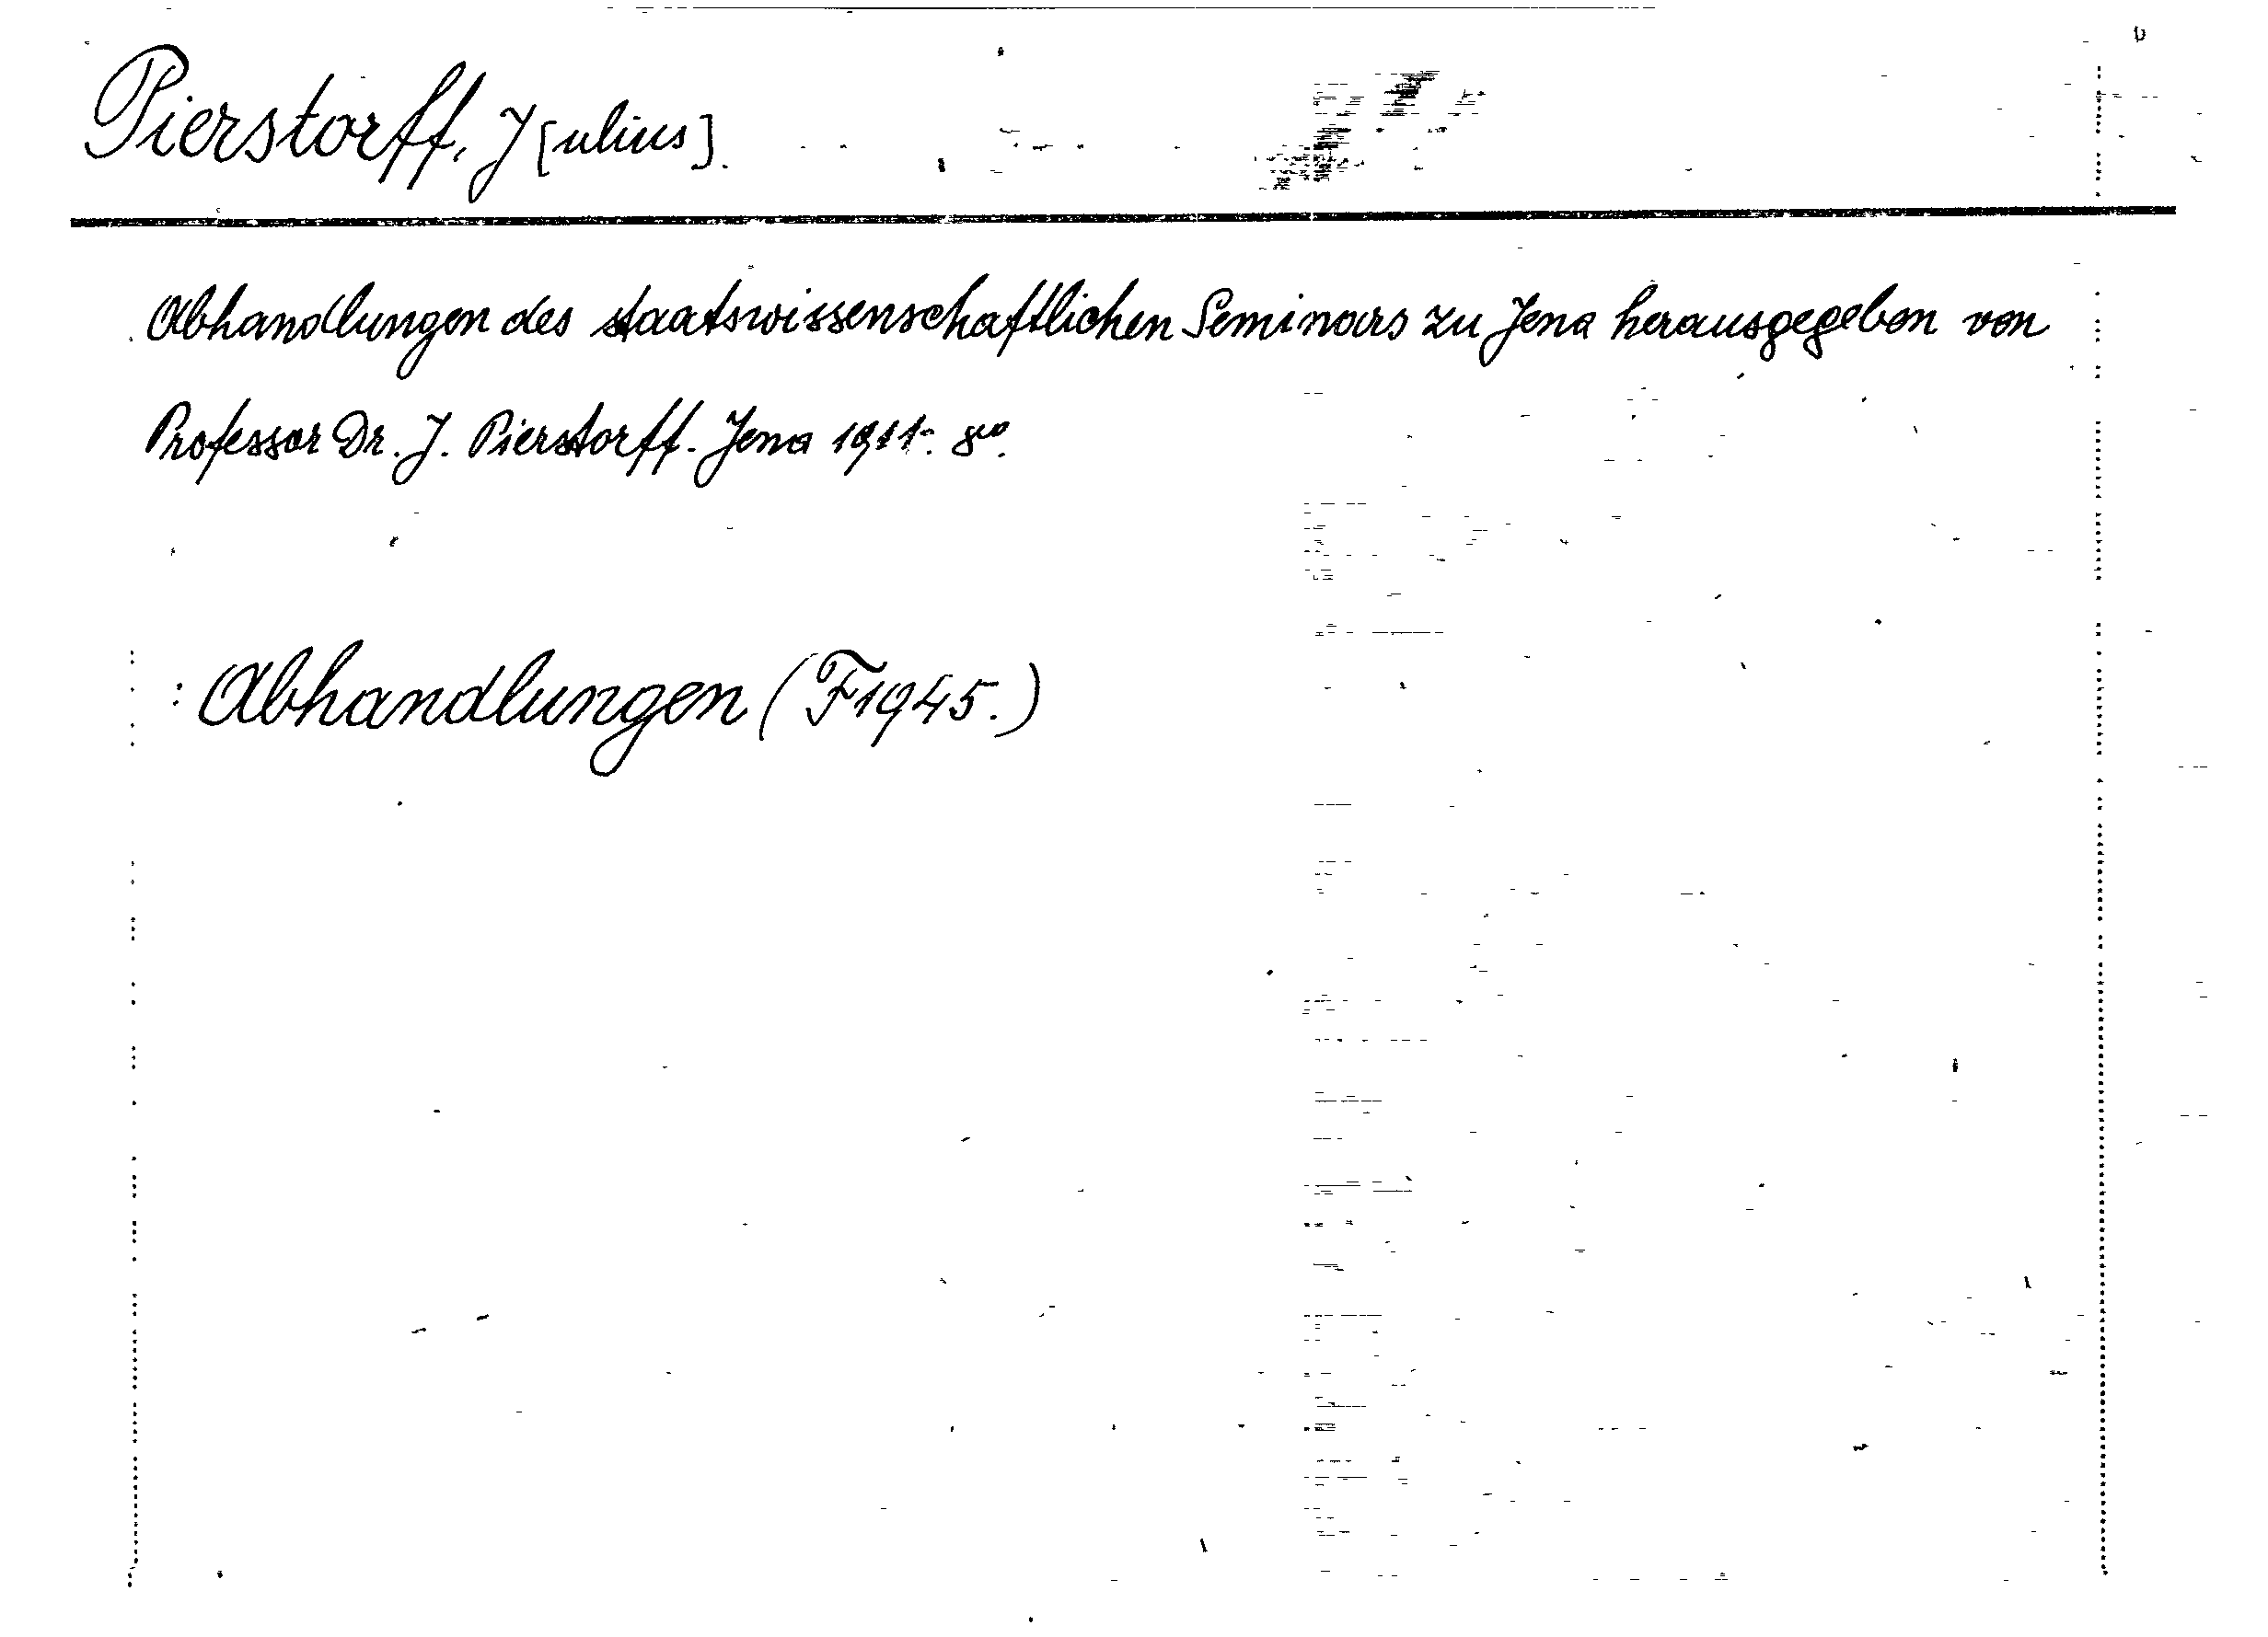 Pierstorff, J[ulius].
Abhandlungen des staatswissenschaftlichen Seminars zu Jena herausgegeben von
Professor Dr. J. Pierstorff. Jena 1911-. 8vo.
: Abhandlungen (F1945.)